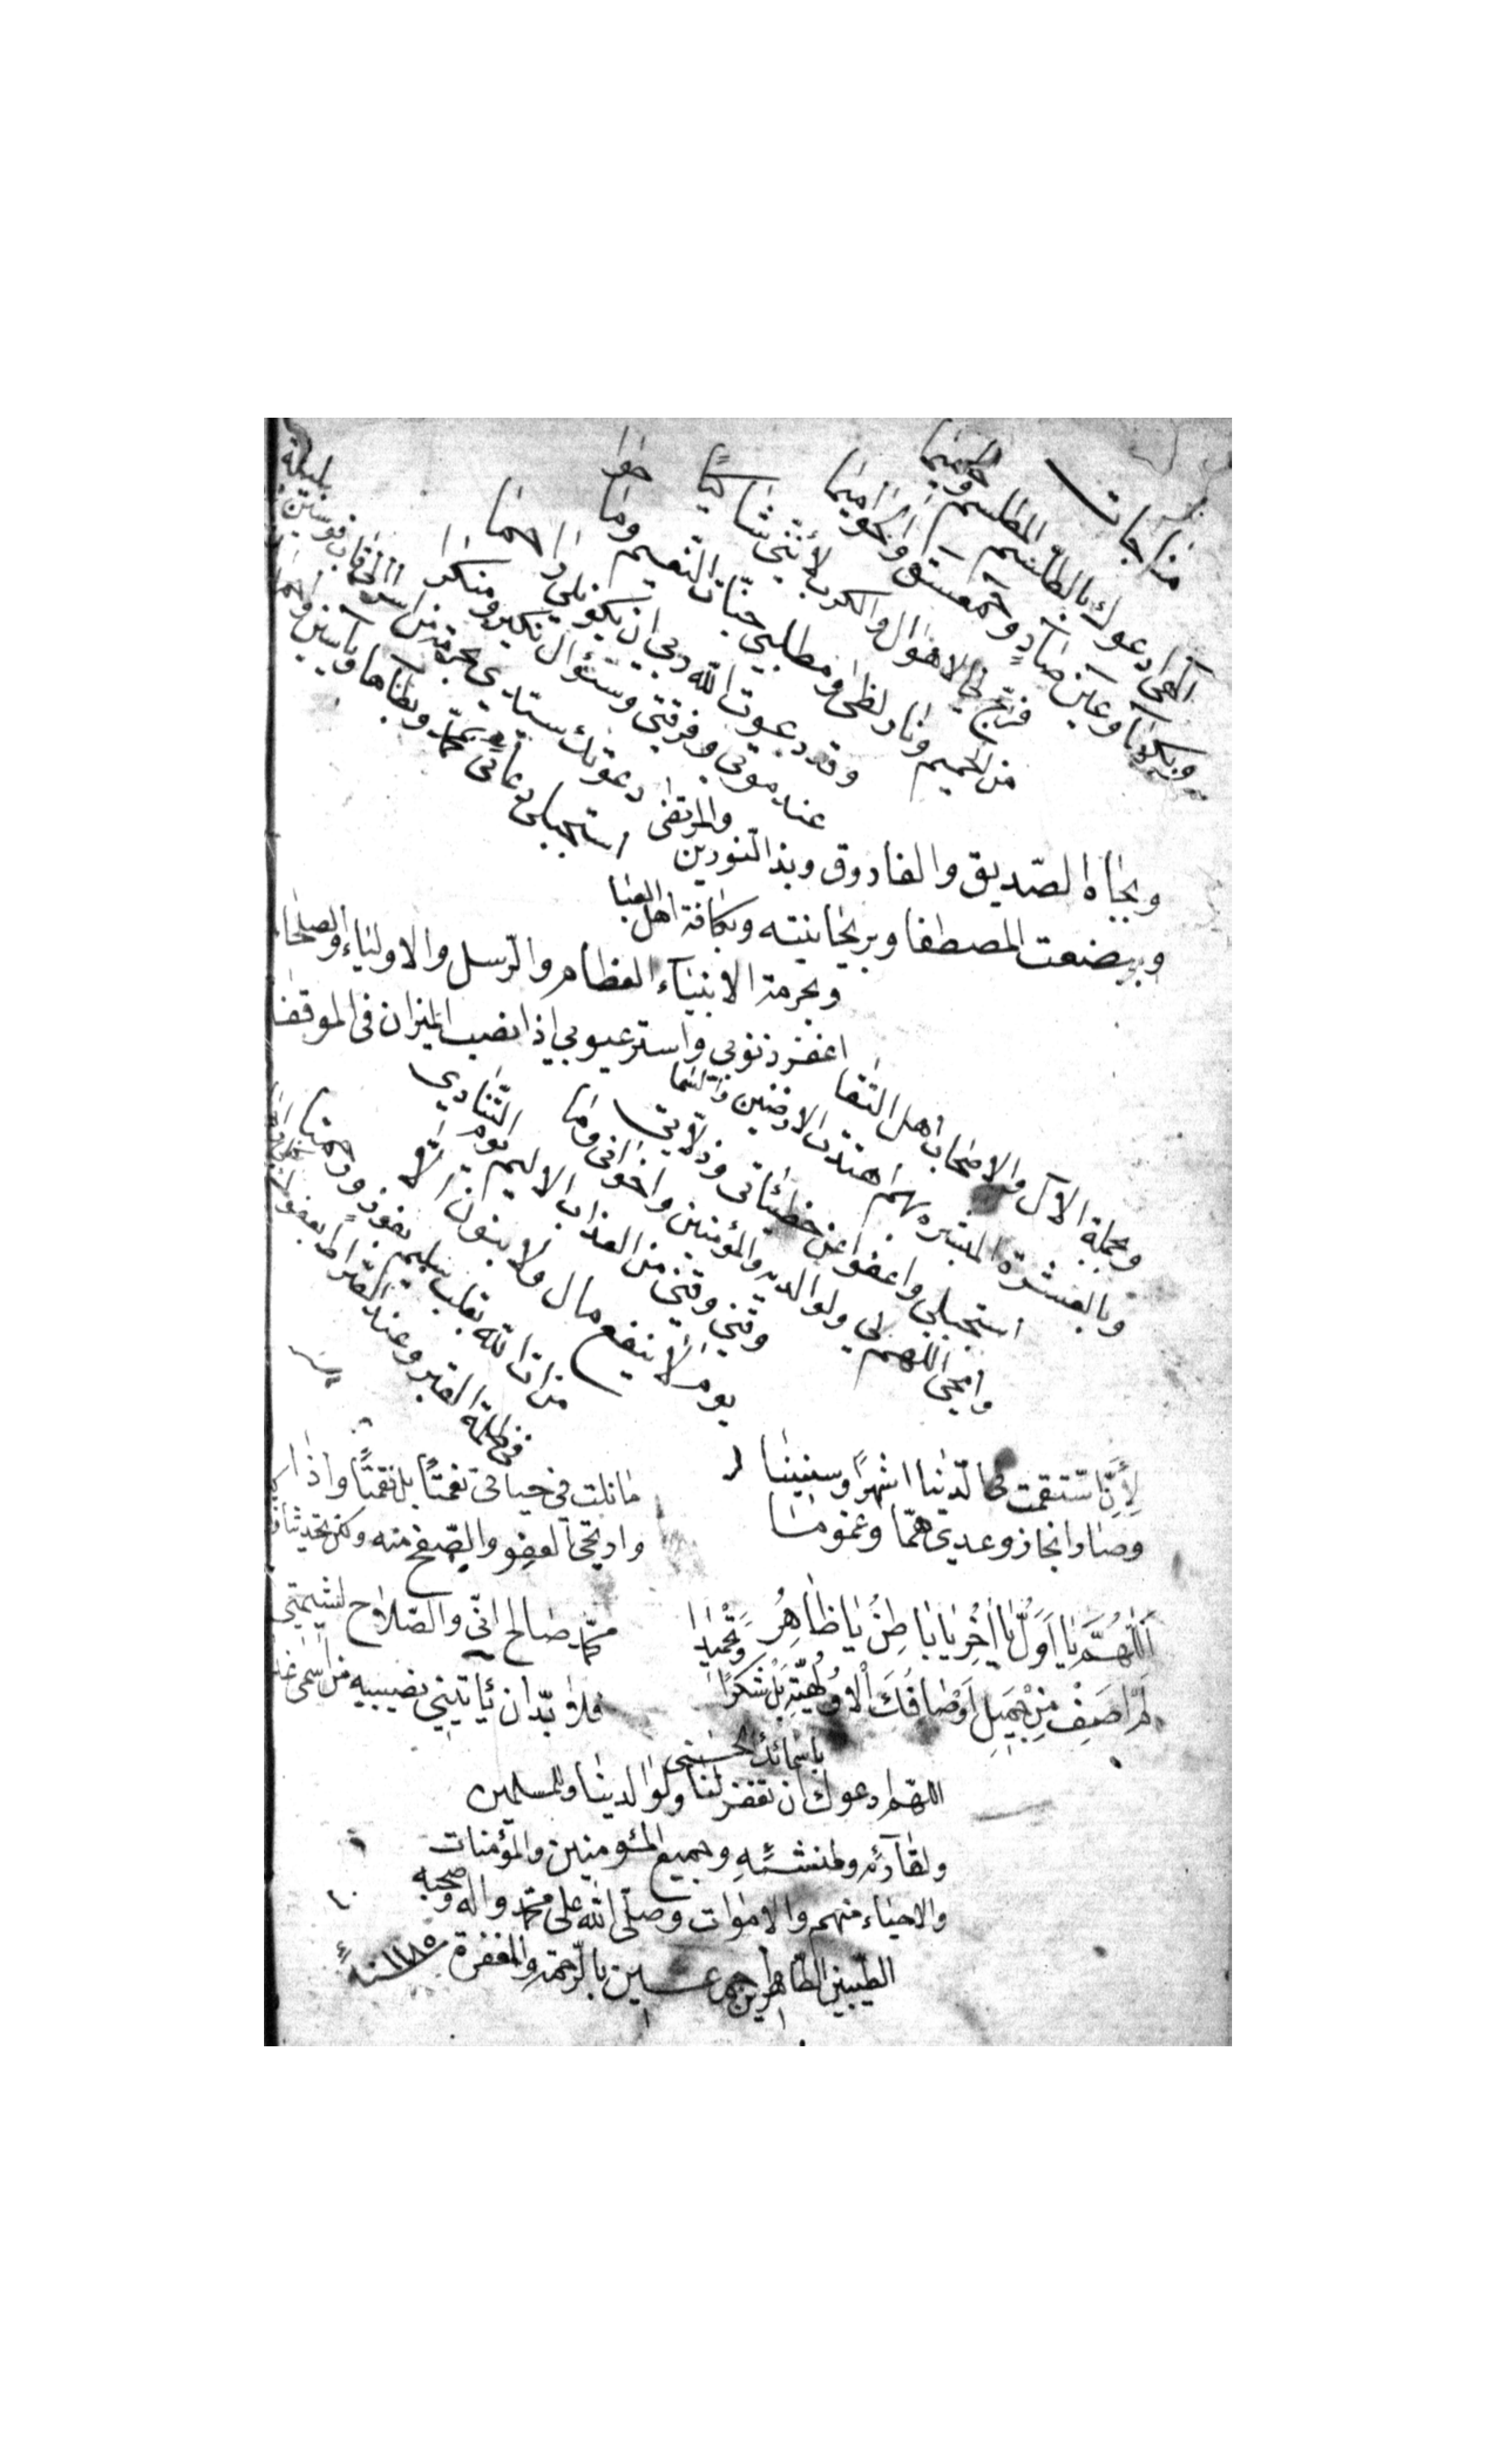 مناجات
آلهى ادعوك بالطاسم المطلسم والحميما
وبكهٰا وعاين صادٍ وحمعسق والحواميما
فرّج لي الاهوال والكرب لأنّني شاكيًا
من الحميم ونار لظى ومطلبي جنّات النعيم وما
وقد دعوت اللّه ربي ان يكون لي راحما
عند موتي وفرقتي وسئوال نكير ومنكرا
دعوتك سيّدي بحرمة من اسرى قاب قوسين بليلة
استجبلى دعائي بمحمّد وبطاها وياسين
وبجاه الصّديق والفاروق وبذا النّورين والمرتضى
وببضعت المصطفا وبريحانيته وبكافة اهل العبا
وبحرمة الانبيآء العظام والرّسل والاولياء والصلحا
اغفر ذنوبى واستر عيوبي اذا نصب الميزان فى الموقفا
وبجملة الآل والاصحاب اهل التقا
وبالعشرة المبشره بهم اهتدت الارضين والسّما
استجبلي واعفوا عن خطيئاتى وذلّاتى
وامحى اللهم لي ولوالديه والمؤمنين واخوانى وما
وقنى من العذاب الاليم يوم التّنادي
يوم لا ينفع مال ولا بنون الّا
من اتا اللّه بقلب سليم يفوز ورحمتا
فى ظلمة القبر وعند الصّراط
لأنّ استقمت في الدّنيا اشهرًا وسنينا
ما نلت في حياتى نعمتًا بل نقمتًا واذا
وصار انجاز وعدي همّا وغموما
وارتجى العفو والصّفح منه
اَللّهُمَّ يَا اَوَّلُ يا اٰخِرُ يا بَاطِنُ يا ظَاهِرُ وتحميدا
محمّد صالح انّى والصّلاح لشيمتى
لم اَصِفْ مِنْ جَميلِ اَوْصَافِكَ الْاُلوُهيَّةِ بَلْ شكرًا
فلا بدّ ان يأتيني نصيبيه من اسمى
باسمائك الحسنى
اللّهم ادعوك ان تغفر لنا ولوالدينا والمسلمين
ولقارئه ولمنشئه وجميع المؤمنين والمؤمنات
والاحياء منهم والاموات وصلّى الله على محمّد واله وصحبه
الطيّبين الطّاهرين اجمعين بالرّحمة والمغفرة سنة ١١٨٥